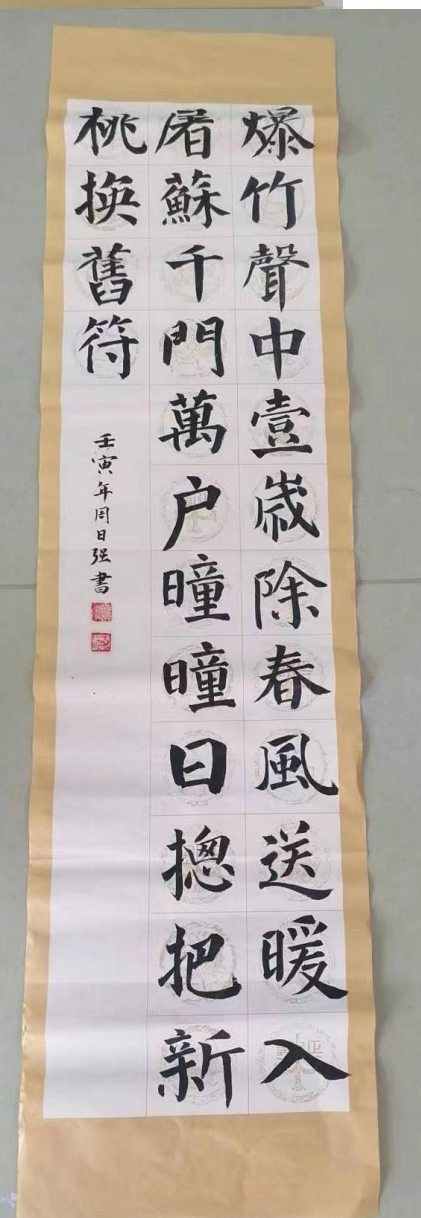 爆竹聲中壹歲除春風送暖入
屠蘇千門萬户曈曈日摠把新
桃換舊符
壬寅年周日强書